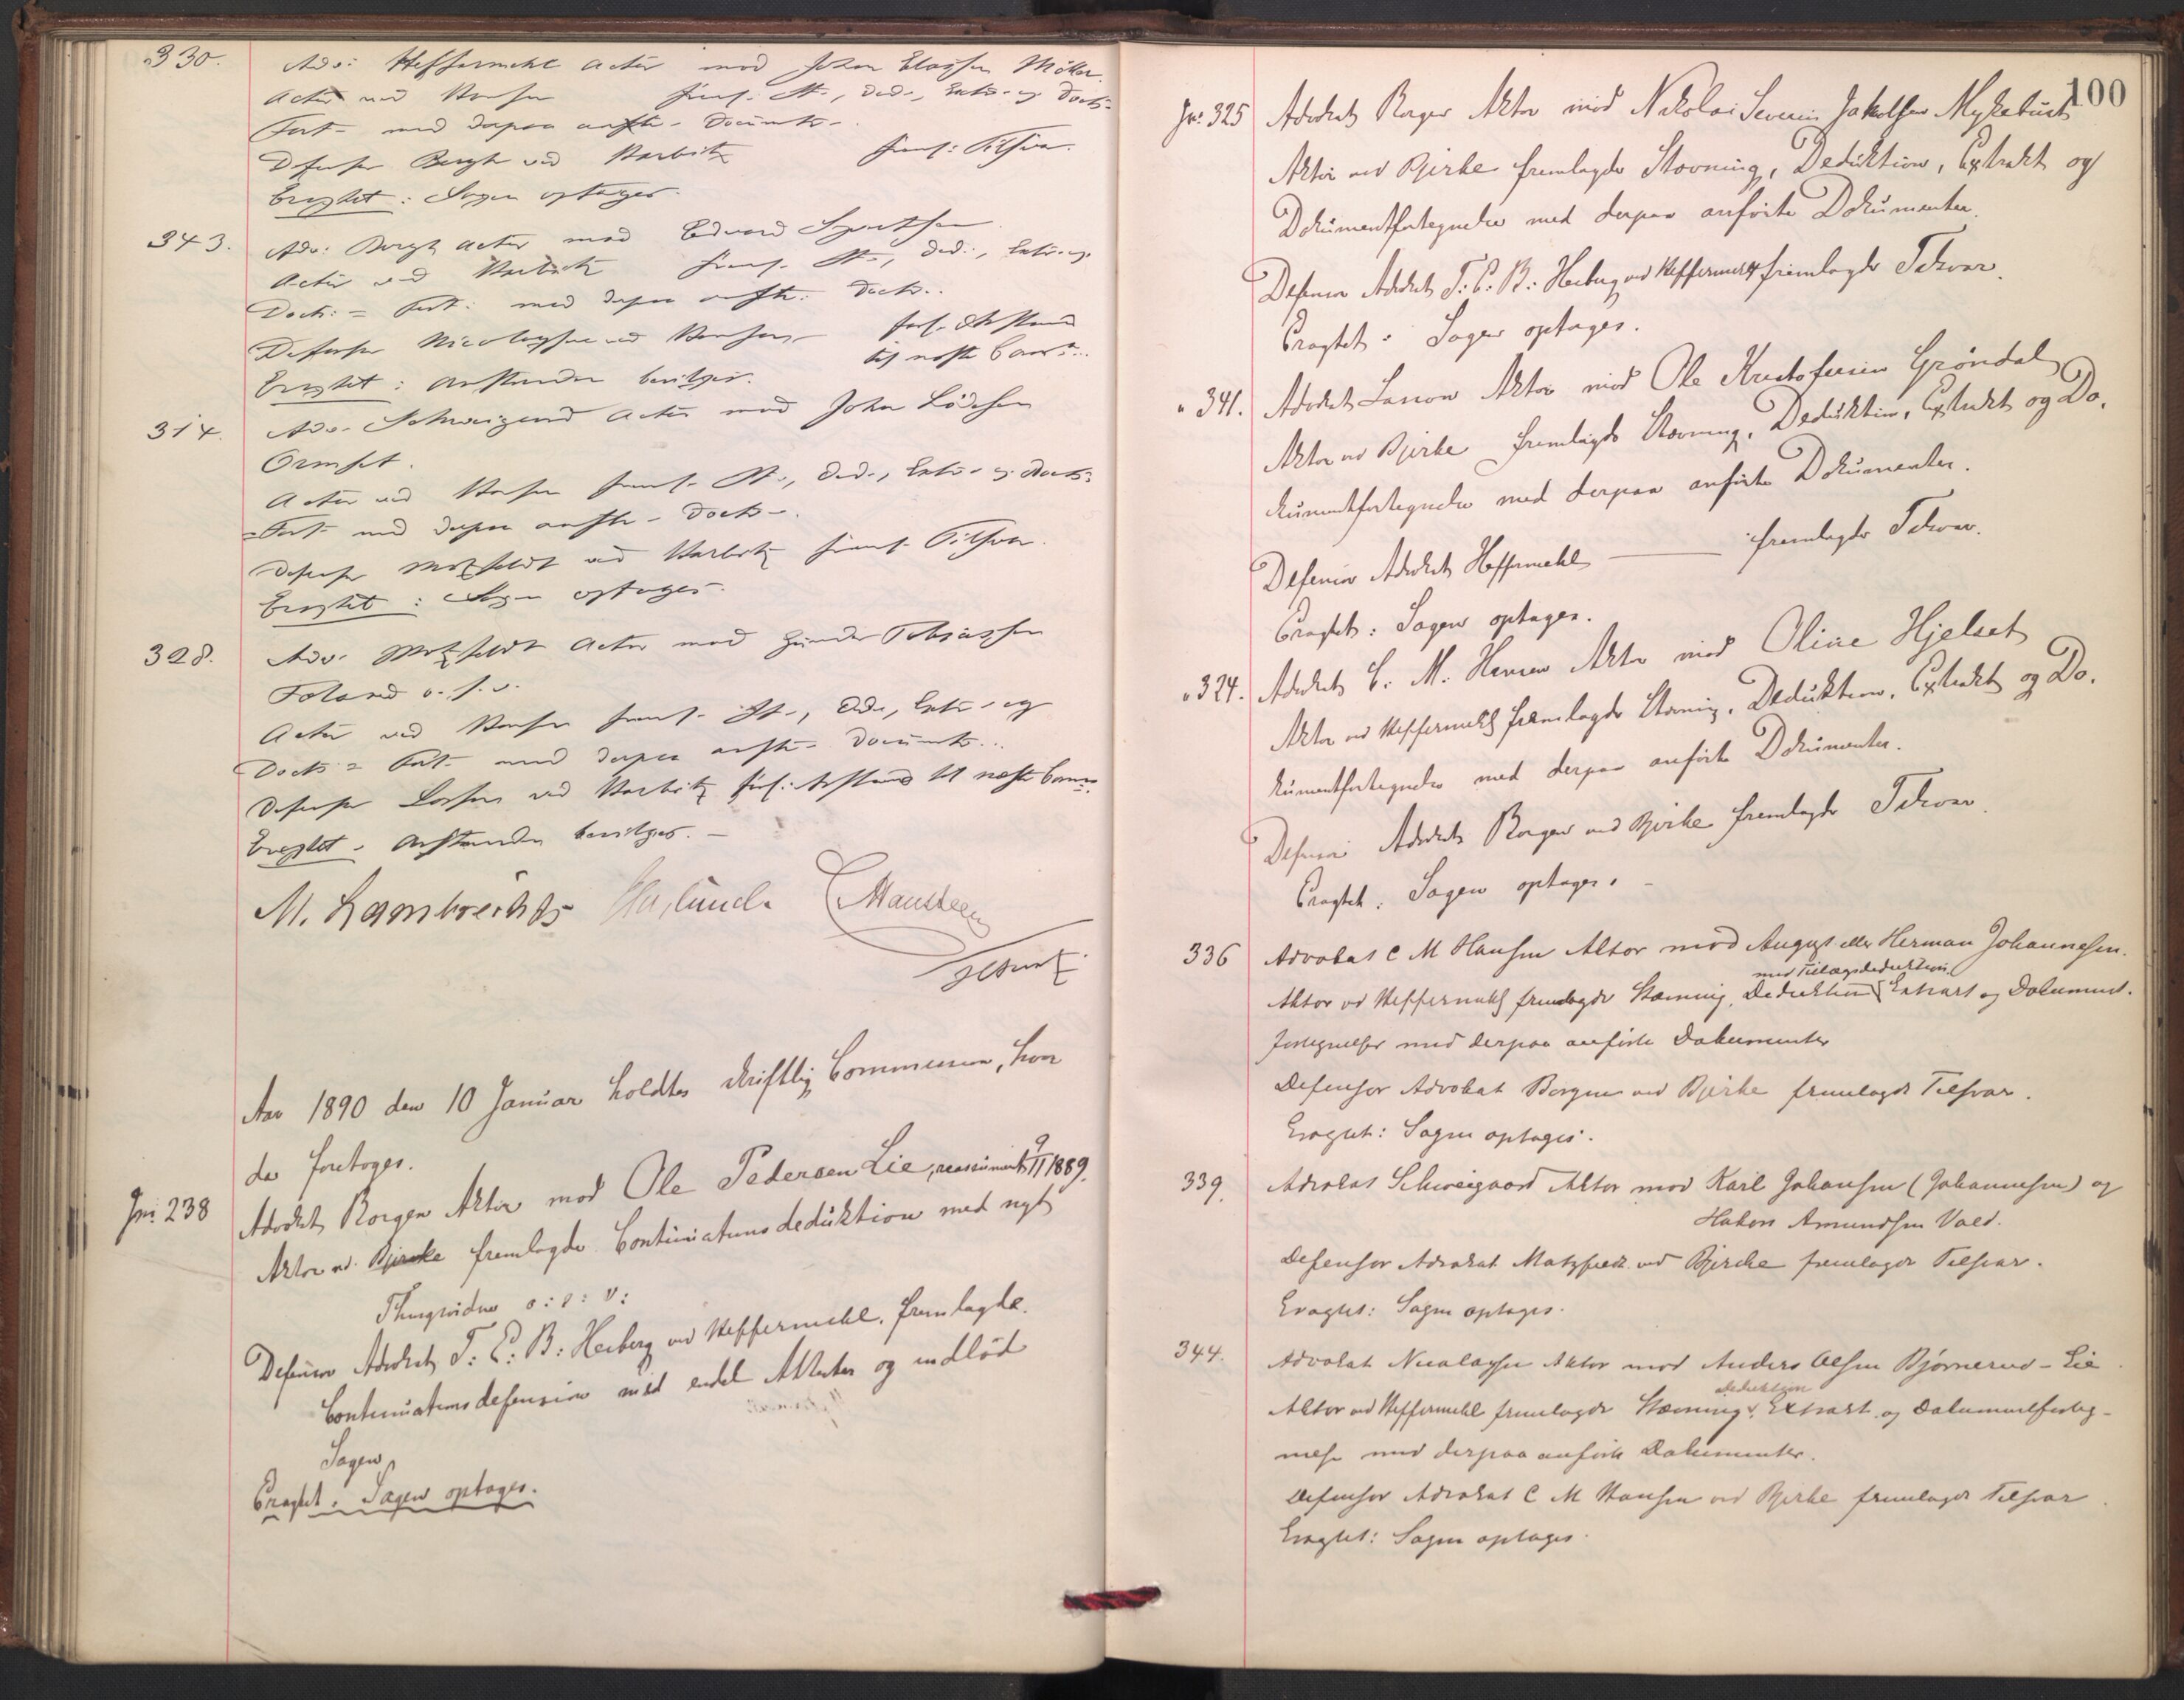 330. Adv: Heffermehl Actor mod Johan Møller.
Actor ved
Fort. med derpaa anfte. Documtr.
Defensor Bergh ved Harbitz freml: Tilsvar.
Eragtet: Sagen optages.
343. Adv: Bergh Actor mod Edvard
Actor ved Harbitz freml. St., Ded., Extr. og
Doct: = Fort: med derpaa anfte. Docts.
Defensor Nicolaysen ved
til næste Comm.
Eragtet: Anstanden bevilges.
314. Adv. Schweigaard Actor mod John
Ormset.
Actor ved freml. St., Ded., Extr. og Doct:
= Fort. med derpaa anfte. Docts.
Defensor Motzfeldt ved Harbitz freml. Tilsvar.
Eragtet: Sagen optages.
328. Adv. Motzfeldt Actor mod Gunder Tobiassen
Foland o. s. v.
Actor ved freml. St., Ded., Extr. og
Docts = Fort. med derpaa anfte. Documtr.
Defensor ved Harbitz Anstand til næste Comm.
Eragtet. Anstanden bevilges. –
M. Lambrechts
Aar 1890 den 10 Januar holdtes skriftlig Commission, hvor
da foretoges.
Jnr: 238 Advokat Borgen Aktor mod Ole Pedersen Lie, reassumert 9/11 1889.
Aktor ved Bjercke fremlagde Continuationsdeduktion med nyt
Thingsvidne o: s: v:
Defensor Advokat T: C: B: Heiberg ved Heffermehl, fremlagde
Continuationsdefension med endel Attester og indlod
Sagen
Eragtet. Sagen optages.
100
Jn: 325 Advokat Borgen Aktor mod Nikolai Severin Jakobsen Myklebust
Aktor ved Bjerke fremlagde Stævning, Deduktion, Extrakt og
Dokumentfortegnelse med derpaa anførte Dokumenter.
Defensor Advokat T: C: B: Heiberg ved Heffermehl fremlagde Tilsvar.
Eragtet: Sagen optages.
" 341. Advokat Larson Aktor mod Ole Kristofersen Grøndal
Aktor ved Bjerke fremlagde Stævning, Deduktion, Extrakt og Do.
kumentfortegnelse med derpaa anførte Dokumenter.
Defensor Advokat Heffermehl — fremlagde Tilsvar.
Eragtet: Sagen optages.
" 324. Advokat C. M. Hansen Aktor mod Oline Hjelset
Aktor ved Heffermehl fremlagde Stævning, Deduktion, Extrakt og Do.
kumentfortegnelse med derpaa anførte Dokumenter.
Defensor Advokat Borgen ved Bjerke fremlagde Tilsvar.
Eragtet. Sagen optages. –
336 Advokat C M Hansen Aktor mod August eller Herman Johannesen.
med Tillægsdeduktion
Aktor ved Heffermehl fremlagde Stævning, Deduktion Extrakt og Dokument.
fortegnelse med derpaa anførte Dokumenter
Defensor Advokat Borgen ved Bjerke fremlagde Tilsvar.
Eragtet: Sagen optages.
339. Advokat Schweigaard Aktor mod Karl Johansen (Johannesen) og
Hakon Amundsen Vold.
Defensor Advokat Motzfeldt ved Bjercke fremlagde Tilsvar.
Eragtet: Sagen optages.
344. Advokat Nicolaysen Aktor mod Anders Olsen Bjørnerud – Lie
deduktion
Aktor ved Heffermehl fremlagde Stævning, Extrakt og Dokumentforteg-
nelse med derpaa anførte Dokumenter.
Defensor Advokat C M Hansen ved Bjerke fremlagde Tilsvar.
Eragtet: Sagen optages.